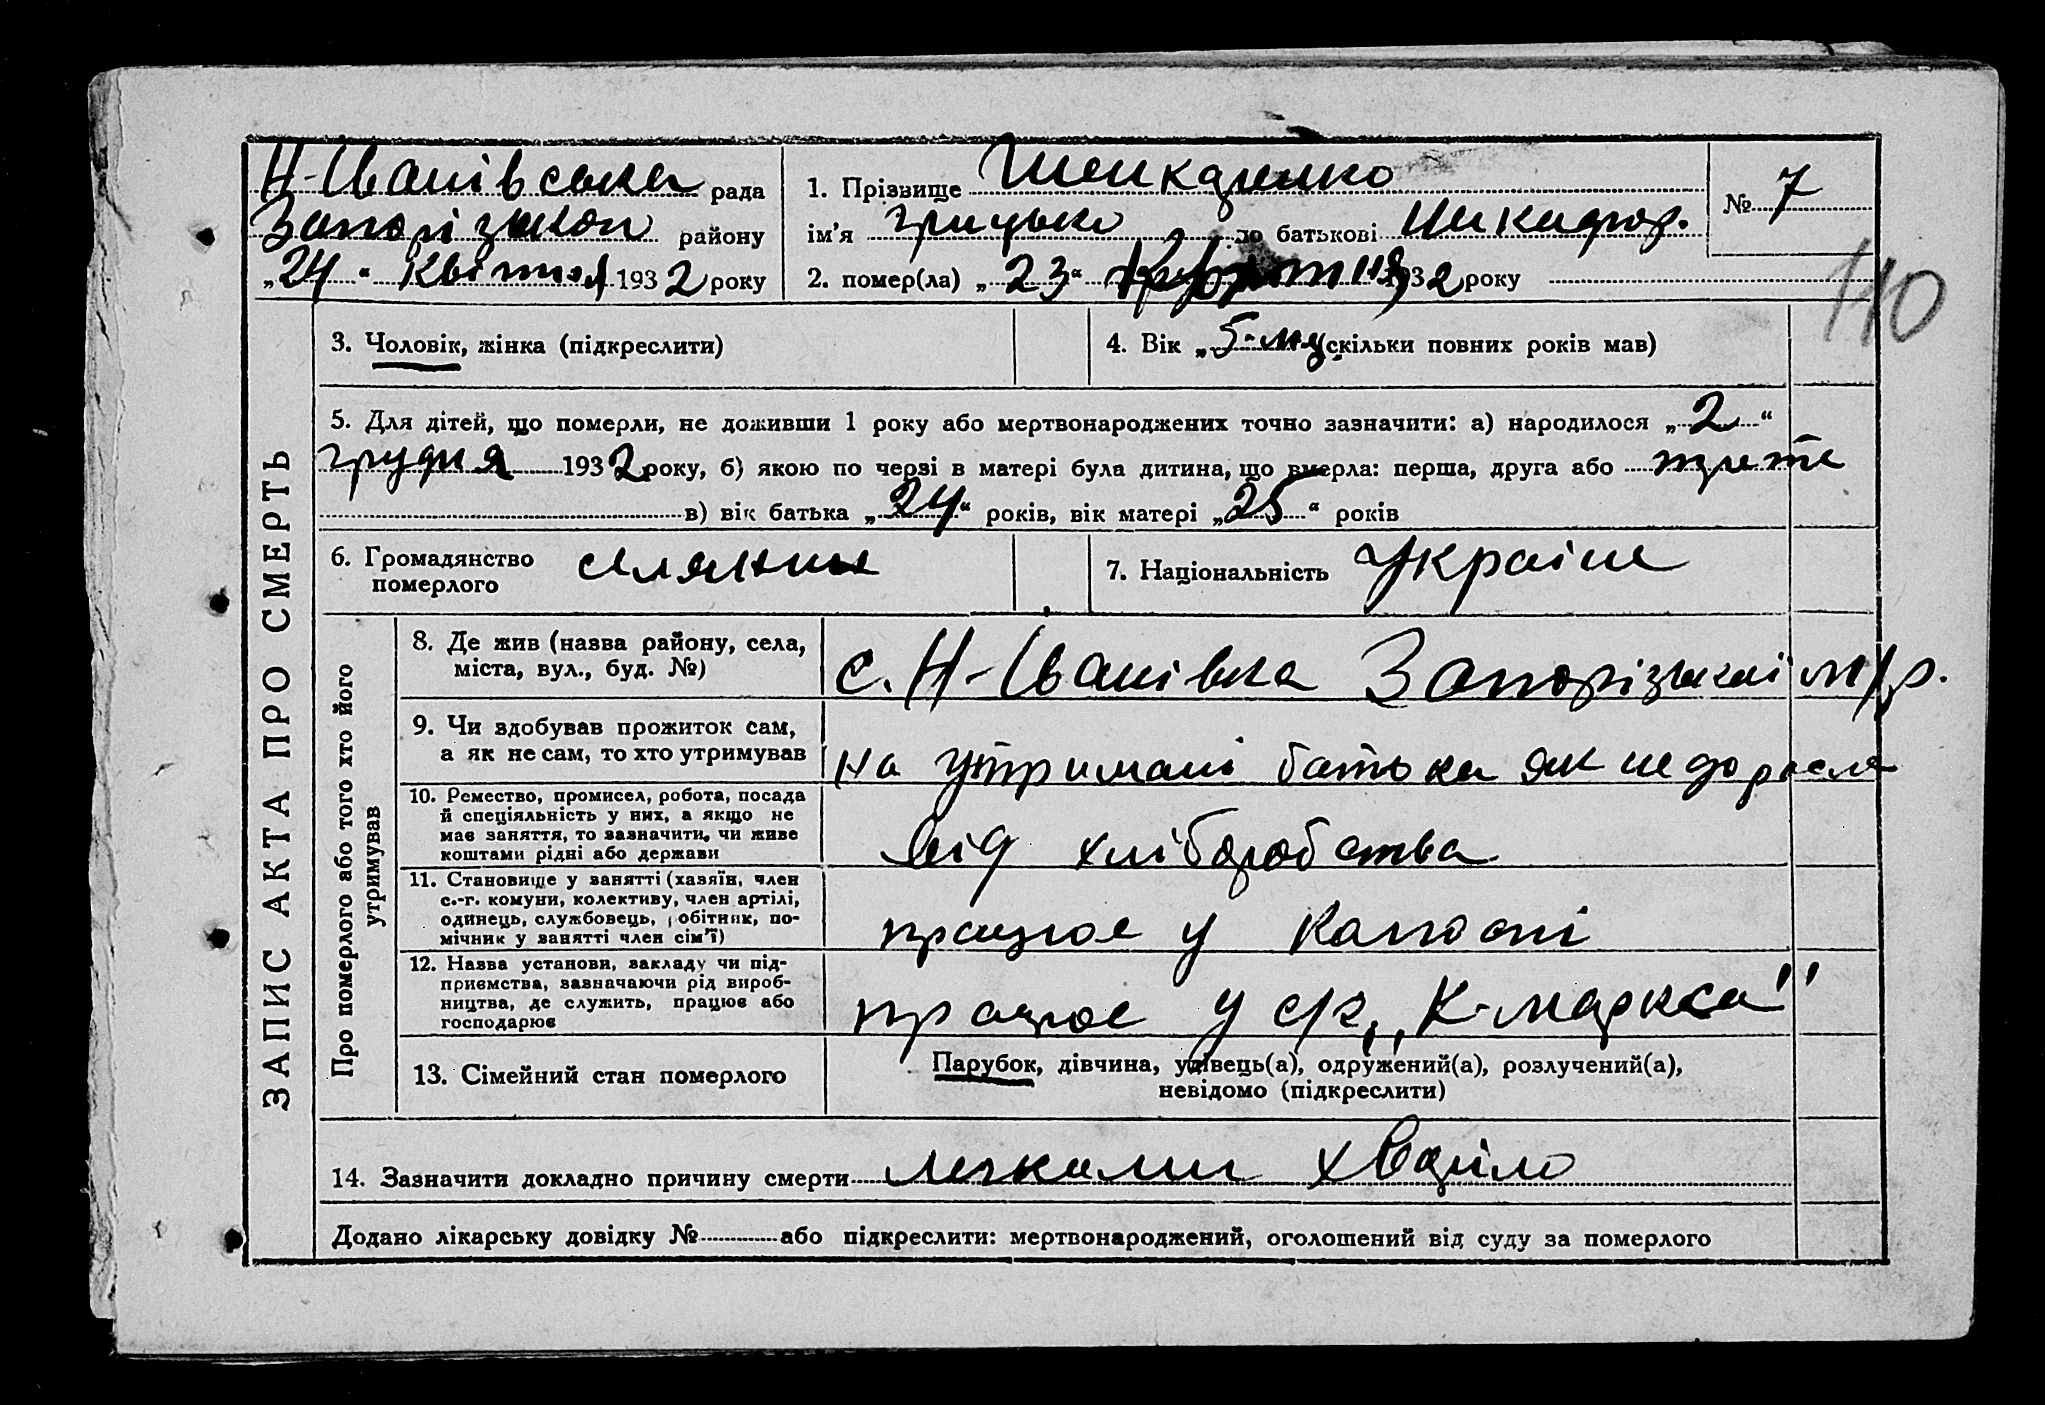 Н-Іванівська рада
Запорізьком району
„24“ квітня 1932 року
1. Прізвище
ім’я Грицько по батькові Никифор.
2. помер(ла) „23“ 1932 року
№ 7
110
ЗАПИС АКТА ПРО СМЕРТЬ
3. Чоловік, жінка (підкреслити)
4. Вік „5-мц скільки повних років мав)
5. Для дітей, що померли, не доживши 1 року або мертвонароджених точно зазначити: а) народилося „2“
грудня 1932 року, б) якою по черзі в матері була дитина, що вмерла: перша, друга або трете
в) вік батька „24“ років, вік матері „25“ років
6. Громадянство
померлого
7. Національність Україне
Про померлого або того хто його
утримував
8. Де жив (назва району, села,
міста, вул., буд. №)
с. Н-Іванівка Запорізькоі м/р.
9. Чи здобував прожиток сам,
а як не сам, то хто утримував
на утримані батька як недоросле
10. Ремество, промисел, робота, посада
й спеціяльність у них, а якщо не
має заняття, то зазначити, чи живе
коштами рідні або держави
від хліборобства
11. Становище у занятті (хазяїн, член
с.-г. комуни, колективу, член артілі,
одинець, службовець, робітник, по-
мічник у занятті член сім’ї)
працює у
12. Назва установи, закладу чи під-
приємства, зазначаючи рід вироб-
ництва, де служить, працює або
господарює
працює у с/г „К-маркса“
13. Сімейний стан померлого
Парубок, дівчина, удівець(а), одружений(а), розлучений(а),
невідомо (підкреслити)
14. Зазначити докладно причину смерти легками хворіло
Додано лікарську довідку № або підкреслити: мертвонароджений, оголошений від суду за померлого